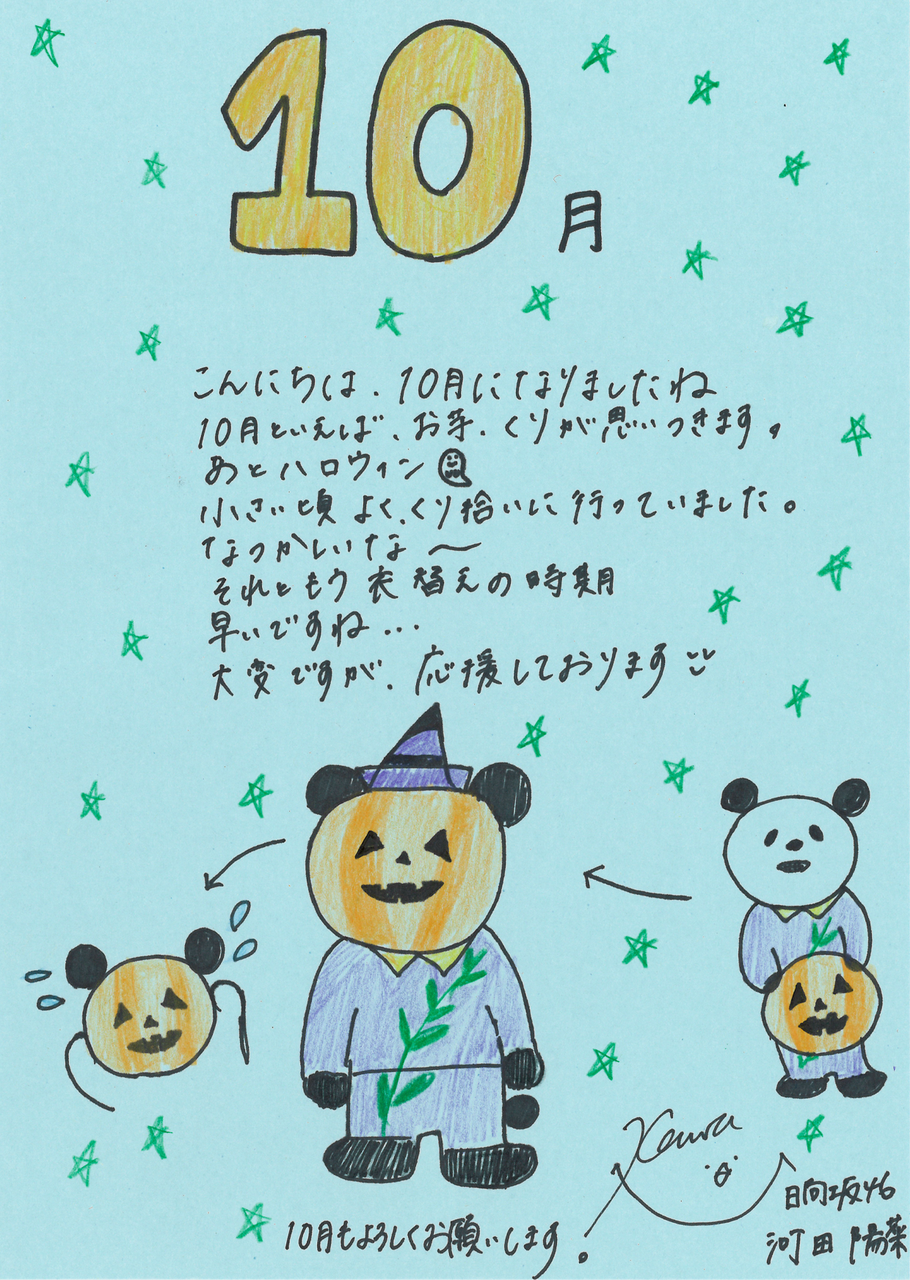 10月
こんにちは、10月になりましたね
10月といえば、お芋、くりが思いつきます。
あとハロウィン
小さい頃よく、くり拾いに行っていました。
なつかしいな〜
それともう衣替えの時期
早いですね...
大変ですが、応援しております
10月もよろしくお願いします。
日向坂46
河田陽菜